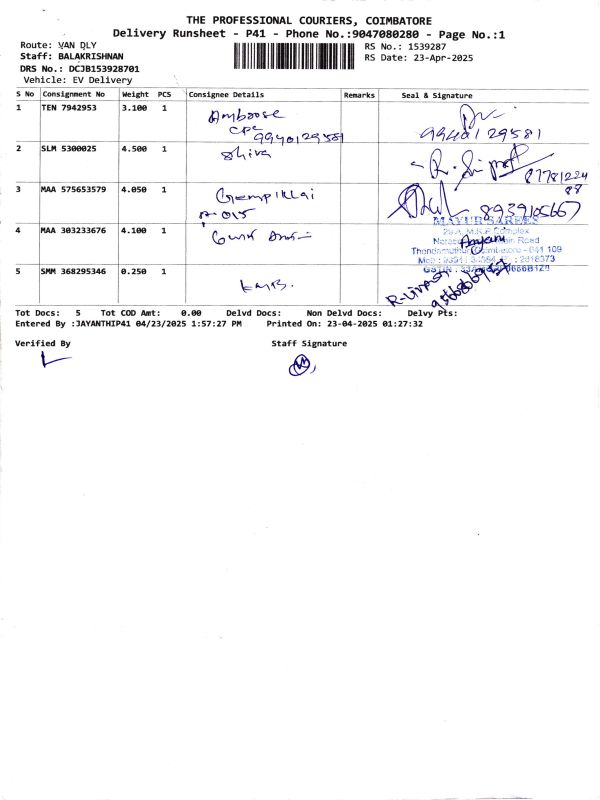 THE PROFESSIONAL COURIERS, COIMBATORE
Delivery Runsheet - P41 - Phone No.:9047080280 - Page No.:1
Route: VAN DLY
RS No.: 1539287
Staff: BALAKRISHNAN
RS Date: 23-Apr-2025
DRS No.: DCJB153928701
Vehicle: EV Delivery
S No Consignment No Weight PCS Consignee Details Remarks Seal & Signature
1 TEN 7942953 3.100 1 Amboose
CPC
9940129581
9940129581
2 SLM 5300025 4.500 1 Shiva
87781224
88
3 MAA 575653579 4.050 1
8939105667
4 MAA 303233676 4.100 1
MAYUR SAREES
Complex
Road
5 SMM 368295346 0.250 1
Tot Docs: 5 Tot COD Amt: 0.00 Delvd Docs: Non Delvd Docs: Delvy Pts:
Entered By :JAYANTHIP41 04/23/2025 1:57:27 PM Printed On: 23-04-2025 01:27:32
Verified By Staff Signature